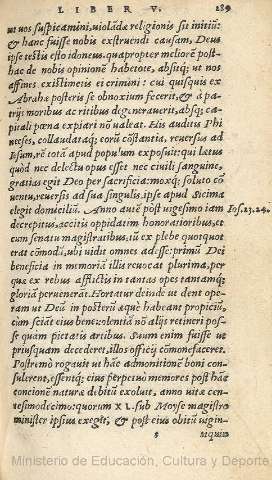 LIBER V. 289
ut uos suspicamini, uiolãdæ religionis sit initiũ:
& hanc fuisse nobis extruendi causam, Deus
ipse testis esto idoneus. quapropter meliorẽ post
hac de nobis opinionẽ habetote, absitq; ut nos
affines existimetis ei crimini: cui quisquis ex
Abrahæ posteris se obnoxium fecerit, & à pa
trijs moribus ac ritibus degenerauerit, absq; ca
pitali pœna expiari nõ ualeat. His auditis Phi
neeses, collaudataq; eorũ cõstantia, reuersus ad
Iesum, rẽ totã apud populum exposuit: qui lætus
quòd nec delectu opus esset nec ciuili sanguine,
gratias egit Deo per sacrificia: moxq; soluto cõ
uentu, reuersis ad sua singulis, ipse apud Sicima
elegit domicilium. Anno autẽ pòst uigesimo iam
Ios. 23. 24.
decrepitus, accitis oppidatim honoratioribus, et
cum senatu magistratibus, tũ ex plebe quotquot
erat cõmodũ, ubi uidit omnes adesse: primũ Dei
beneficia in memoriã illis reuocat plurima, per
quæ ex rebus afflictis in tantas opes tantamq;
gloriã peruenerãt. Hortatur deinde ut dent ope
ram ut Deũ in posterũ æquè habeant propiciũ,
cùm sciãt eius beneuolentiã nõ alijs retineri pos-
se quàm pietatis artibus. Suum enim fuisse ut
priusquam decederet, illos officij cõmonefaceret.
Postremò rogauit ut hãc admonitionẽ boni con
sulerent, essentq; eius perpetuò memores post hãc
concionẽ naturæ debitũ exoluit, anno uitæ cen-
tesimodecimo: quorum XL. sub Moyse magistro
minister ipsius exegit, & post eius obitũ uigin-
s
tiquin
Ministerio de Educación, Cultura y Deporte